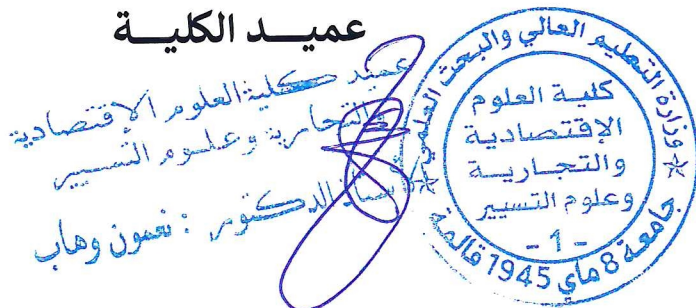 عميــد الكليــة
عميد كلية العلوم الإقتصادية
والتجارية وعلوم التسيير
الأستاذ الدكتور : نعمون وهاب
وزارة التعليم العالي والبحث العلمي
كلية العلوم
الإقتصادية
والتجارية
وعلوم التسيير
- 1 -
جامعة 8 ماي 1945 قالمة